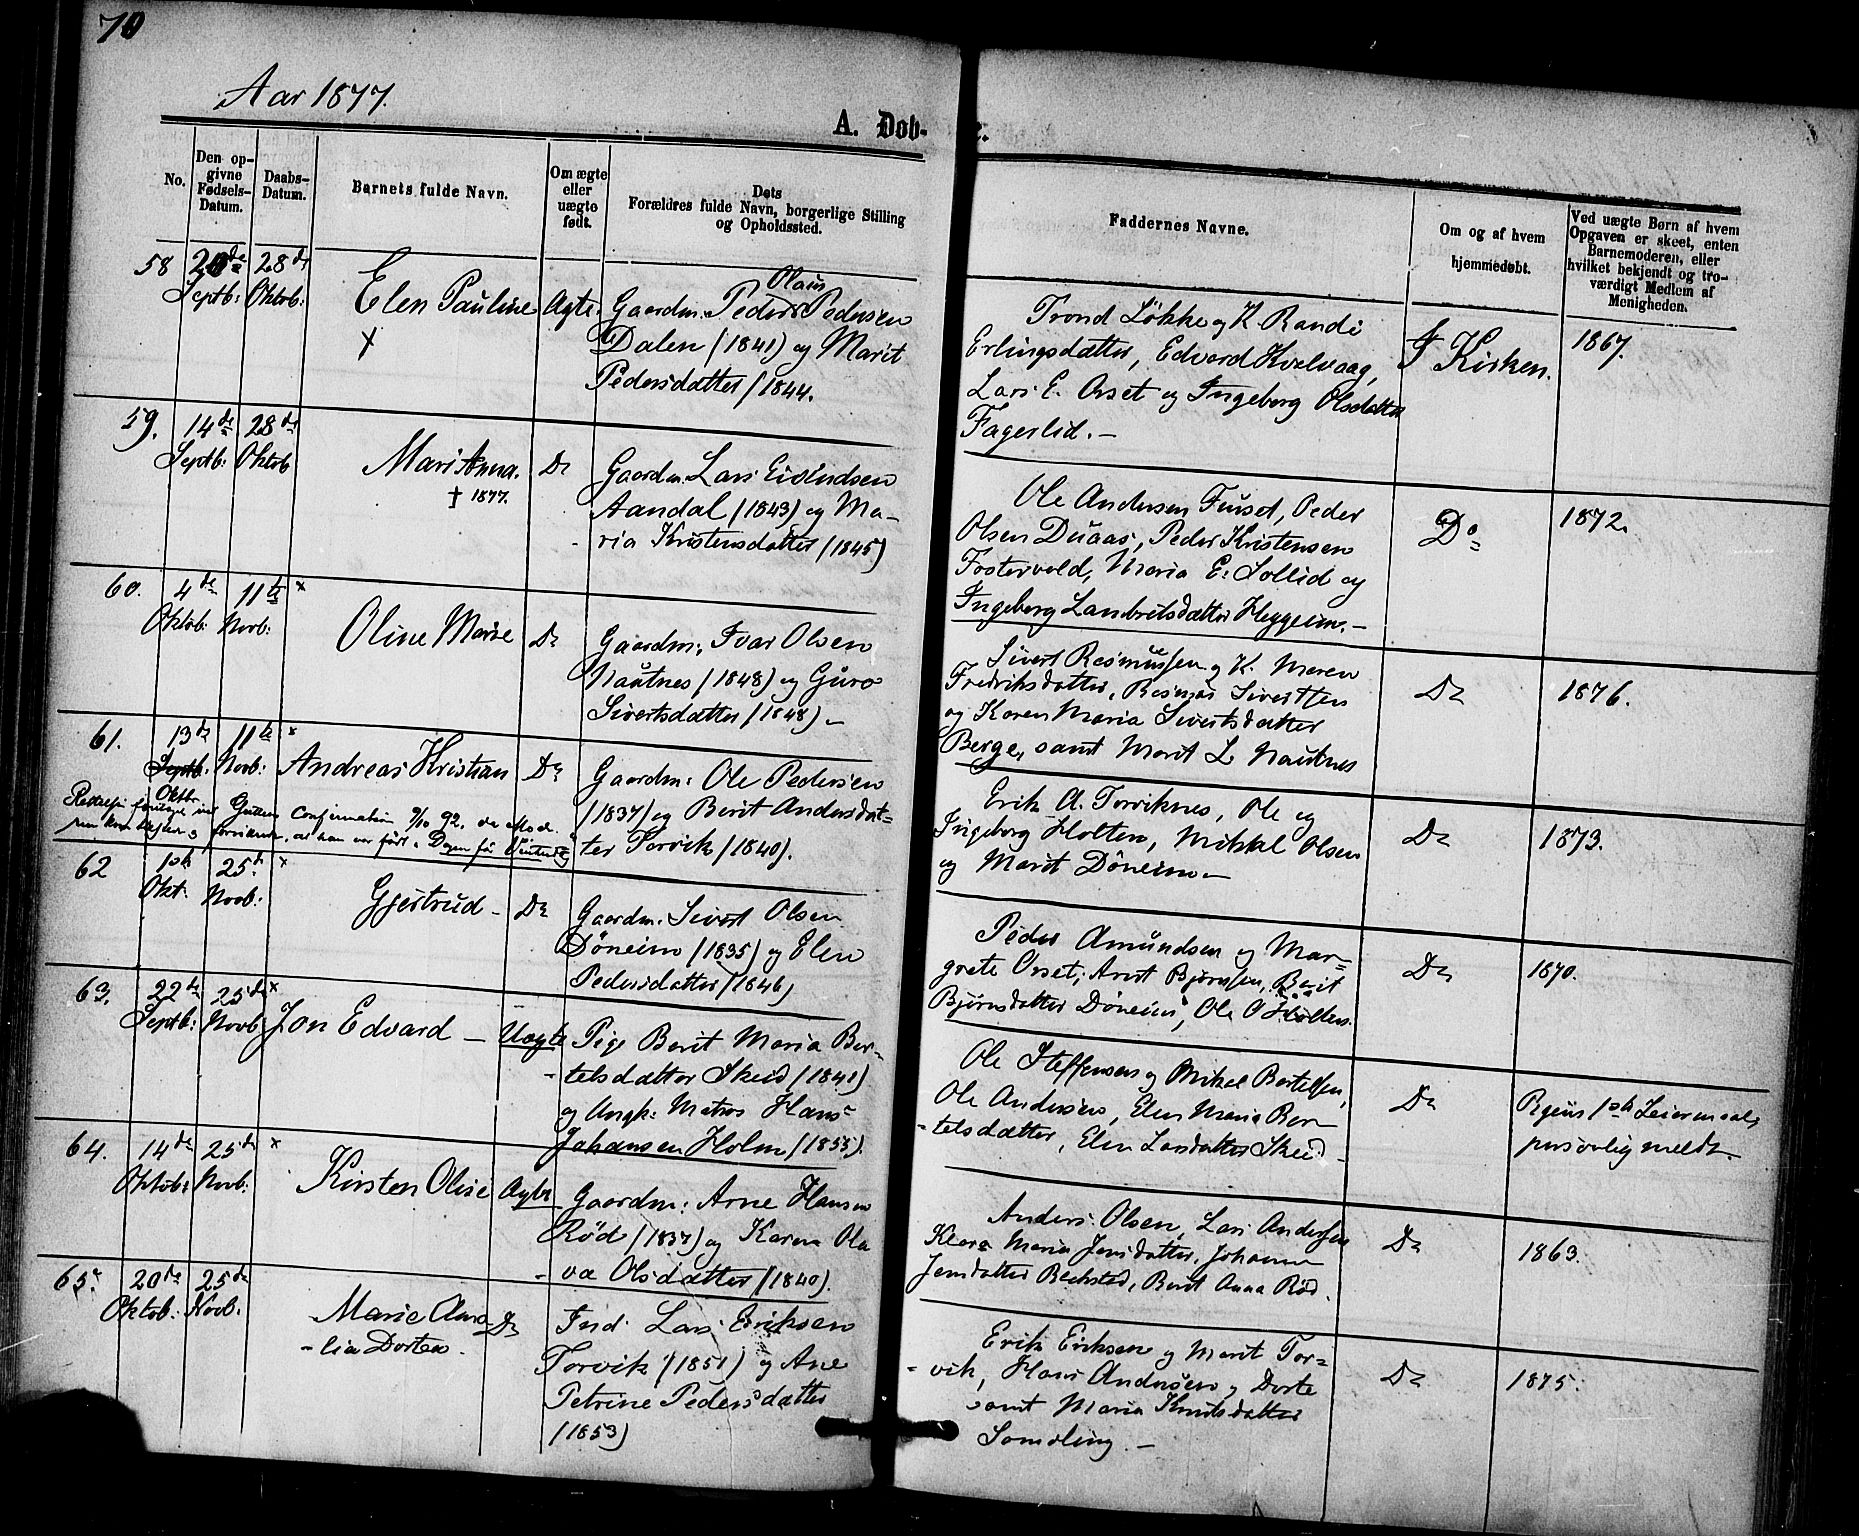 70
Aar 1877.
A. Døb-
e.
No.
Den op-
givne
Fødsels-
Datum.
Daabs-
Datum.
Barnets fulde Navn.
Om ægte
eller
uægte
født.
Dets
Forældres fulde Navn, borgerlige Stilling
og Opholdssted.
Faddernes Navne.
Om og af hvem
hjemmedøbt.
Ved uægte Børn af hvem
Opgaven er skeet, enten
Barnemoderen, eller
hvilket bekjendt og tro-
værdigt Medlem af
Menigheden.
58 20de Septb: 28de Oktob: Elen Pauline Ægte.
Olaus
Gaardm. Peder Pedersen
Dalen (1841) og Marit
Pedersdatter (1844.
Trond Løkke og K. Randi
Erlingsdatter, Edvard Kvalvaag,
Lars E. Orset og Ingeborg Olsdatter
Fagerlid. —
I Kirken.
1867.
59. 14de Septb: 28de Oktob Mari Anna. Do
† 1877.
Gaardm. Lars Eivindsen
Aandal (1843) og Ma-
ria Kristensdatter (1845)
Ole Andersen Furset, Peder
Olsen Duaas, Peder Kristensen
Fostervold, Maria E. Sollid og
Ingeborg Lambritsdatter Heggeim. —
Do
1872.
60. 4de Oktob: 11te Novb: × Oline Marie Do
Gaardm: Ivar Olsen
Nautnes (1848) og Guro
Sivertsdatter (1848) —
Sivert Rasmussen og K. Maren
Fredriksdatter, Rasmus Sivertsen
og Karen Maria Sivertsdatter
Berge, samt Marit L Nautnes
Do
1876.
61. 13de Septb. Oktbr 11te Novb: × Andreas Kristian Do
Gaardm: Ole Pedersen
(1837) og Berit Andersdat-
ter Torvik (1840).
Guttens Confirmation 9/10 92. da Mode-
at han var født Dagen før
Erik A. Torviknes, Ole og
Ingeborg Holten, Mikkel Olsen
og Marit Døneim —
Do
1873.
62 1ste Okt. 25de Novb: × Gjertrud — Do
Gaardm. Sivert Olsen
Døneim (1835) og Elen
Pedersdatter (1846)
Peder Amundsen og Mar-
grete Orset, Arnt Bjørnsen, Berit
Bjørnsdatter Døneim, Ole O Holten.
Do
1870.
63. 22de Septb: 25de Novb × Jon Edvard — Uægte
Pige Berit Maria Ber-
telsdatter Skeid (1841)
og Ungk: Matros Hans
Johansen Holm (1855).
Ole Steffensen og Mikal Bertelsen,
Ole Andersen, Elen Maria Ber-
telsdatter, Elen Larsdatter Skeid —
Do
Pigens 1ste Leiermaal,
personlig meldt.
64. 14de Oktob: 25de Novb: × Kirsten Olise Ægte
Gaardm: Arne Hansen
Rød (1837) og Karen Ola
va Olsdatter (1840).
Anders Olsen, Lars Andersen
Klara Maria Jensdatter, Johanna
Jensdatter Bekstad, Berit Anna Rød.
Do
1863.
65. 20de Oktob: 25de Novb. Marie Ama- Do
lia Dortea —
Ind. Lars Eriksen
Torvik (1851) og Ane
Petrine Pedersdatter
(1853)
Erik Eriksen og Marit Tor-
vik, Hans Andersen og Dorte
samt Maria Knutsdatter
Samdling. —
Do
1875.